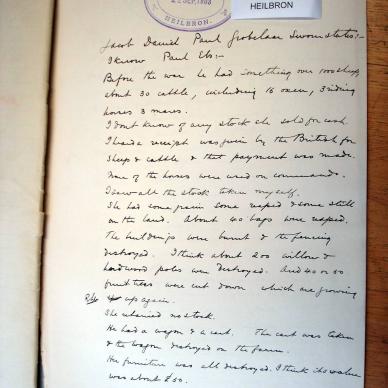 22 SEP. 1903
HEILBRON.
HEILBRON
Jacob Daniel Paul Grobelaar Sworn states:-
I know Paul Els:-
Before the war he had something over 1000 sheep,
about 30 cattle, including 16 oxen, 3 riding
horses 3 mares.
I don't know of any stock she sold for cash.
I heard a receipt was given by the British for
Sheep & cattle & that payment was made.
None of the horses were used on commando.
I saw all the stock taken myself.
She had some grain some reaped & some still
on the land. About 40 bags were reaped.
The buildings were burnt & the fencing
destroyed. I think about 200 willow &
hardwood poles were destroyed. And 40 or 50
fruit trees were cut down which are growing
up again.
She retained no stock.
He had a wagon & a cart. The cart was taken
& the wagon destroyed on the farm.
Her furniture was all destroyed. I think its value
was about £50.